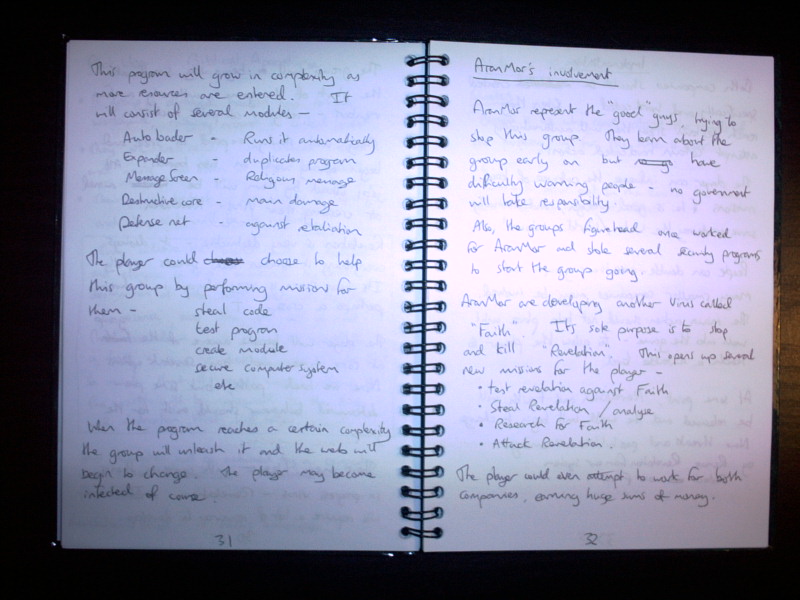 This program will grow in complexity as
more resources are entered. It
will consist of several modules -
Autoloader - Runs it automatically
Expander - duplicates program
Message Screen - Religious message
Destructive core - main damage
Defense net - against retaliation
The player could choose to help
this group by performing missions for
them - steal code
test program
create module
secure computer system
etc
When the program reaches a certain complexity
the group will unleash it and the web will
begin to change. The player may become
infected of course
31
AranMor's involvement
AranMor represent the "good" guys, trying to
stop this group. They learn about the
group early on but have
difficulty warning people - no government
will take responsibility.
Also, the groups figurehead once worked
for AranMor and stole several security programs
to start the group going.
AranMor are developing another virus called
"Faith". Its sole purpose is to stop
and kill "Revelation". This opens up several
new missions for the player -
• test revelation against Faith
• Steal Revelation / analyse
• Research for Faith
• Attack Revelation.
The player could even attempt to work for both
companies, earning huge sums of money.
32